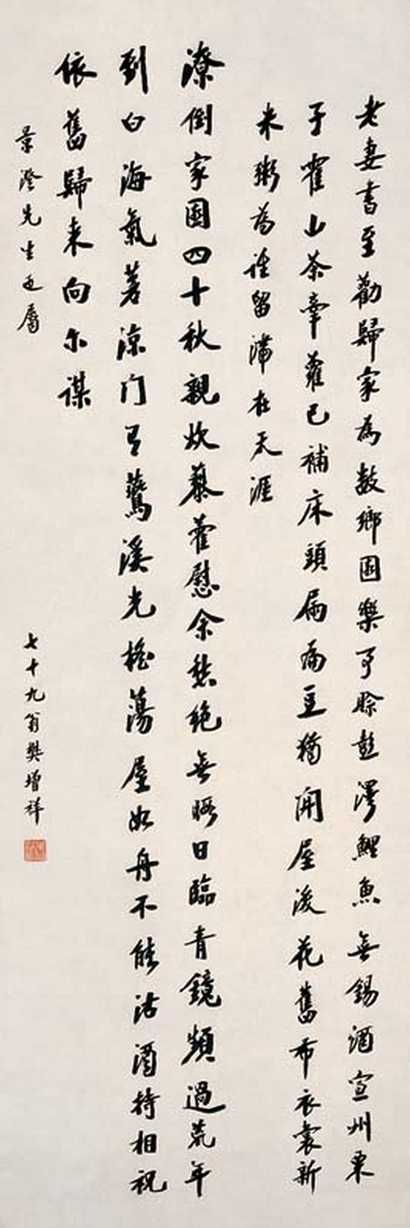 老妻書至勸歸家為數鄉園樂事賒彭澤鯉魚無錫酒宣州栗
子霍山茶牽蘿已補床頭屚扁豆猶開屋後花舊布衣裳新
米粥為誰留滯在天涯
潦倒家園四十秋親炊藜藿慰余愁絕無暇日臨青鏡頻過荒年
到白海氣荒涼門有鷰溪光搖蕩屋如舟不能沽酒持相祝
依舊歸來向尔謀
景澄先生正屬
七十九翁樊增祥